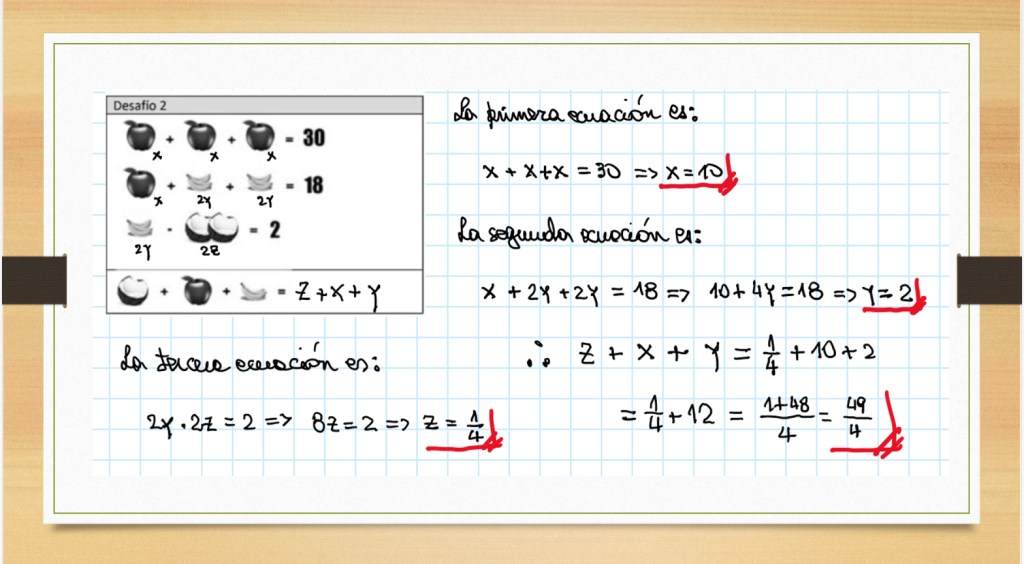 Desafío 2
+ + = 30
x x x
+ + = 18
x 2y 2y
- = 2
2y 2z
+ + = z + x + y
La primera ecuación es:
x + x + x = 30 => x = 10
La segunda ecuación es:
x + 2y + 2y = 18 => 10 + 4y = 18 => y = 2
La tercera ecuación es:
2y . 2z = 2 => 8z = 2 => z = 1/4
∴ z + x + y = 1/4 + 10 + 2
= 1/4 + 12 = (1+48)/4 = 49/4